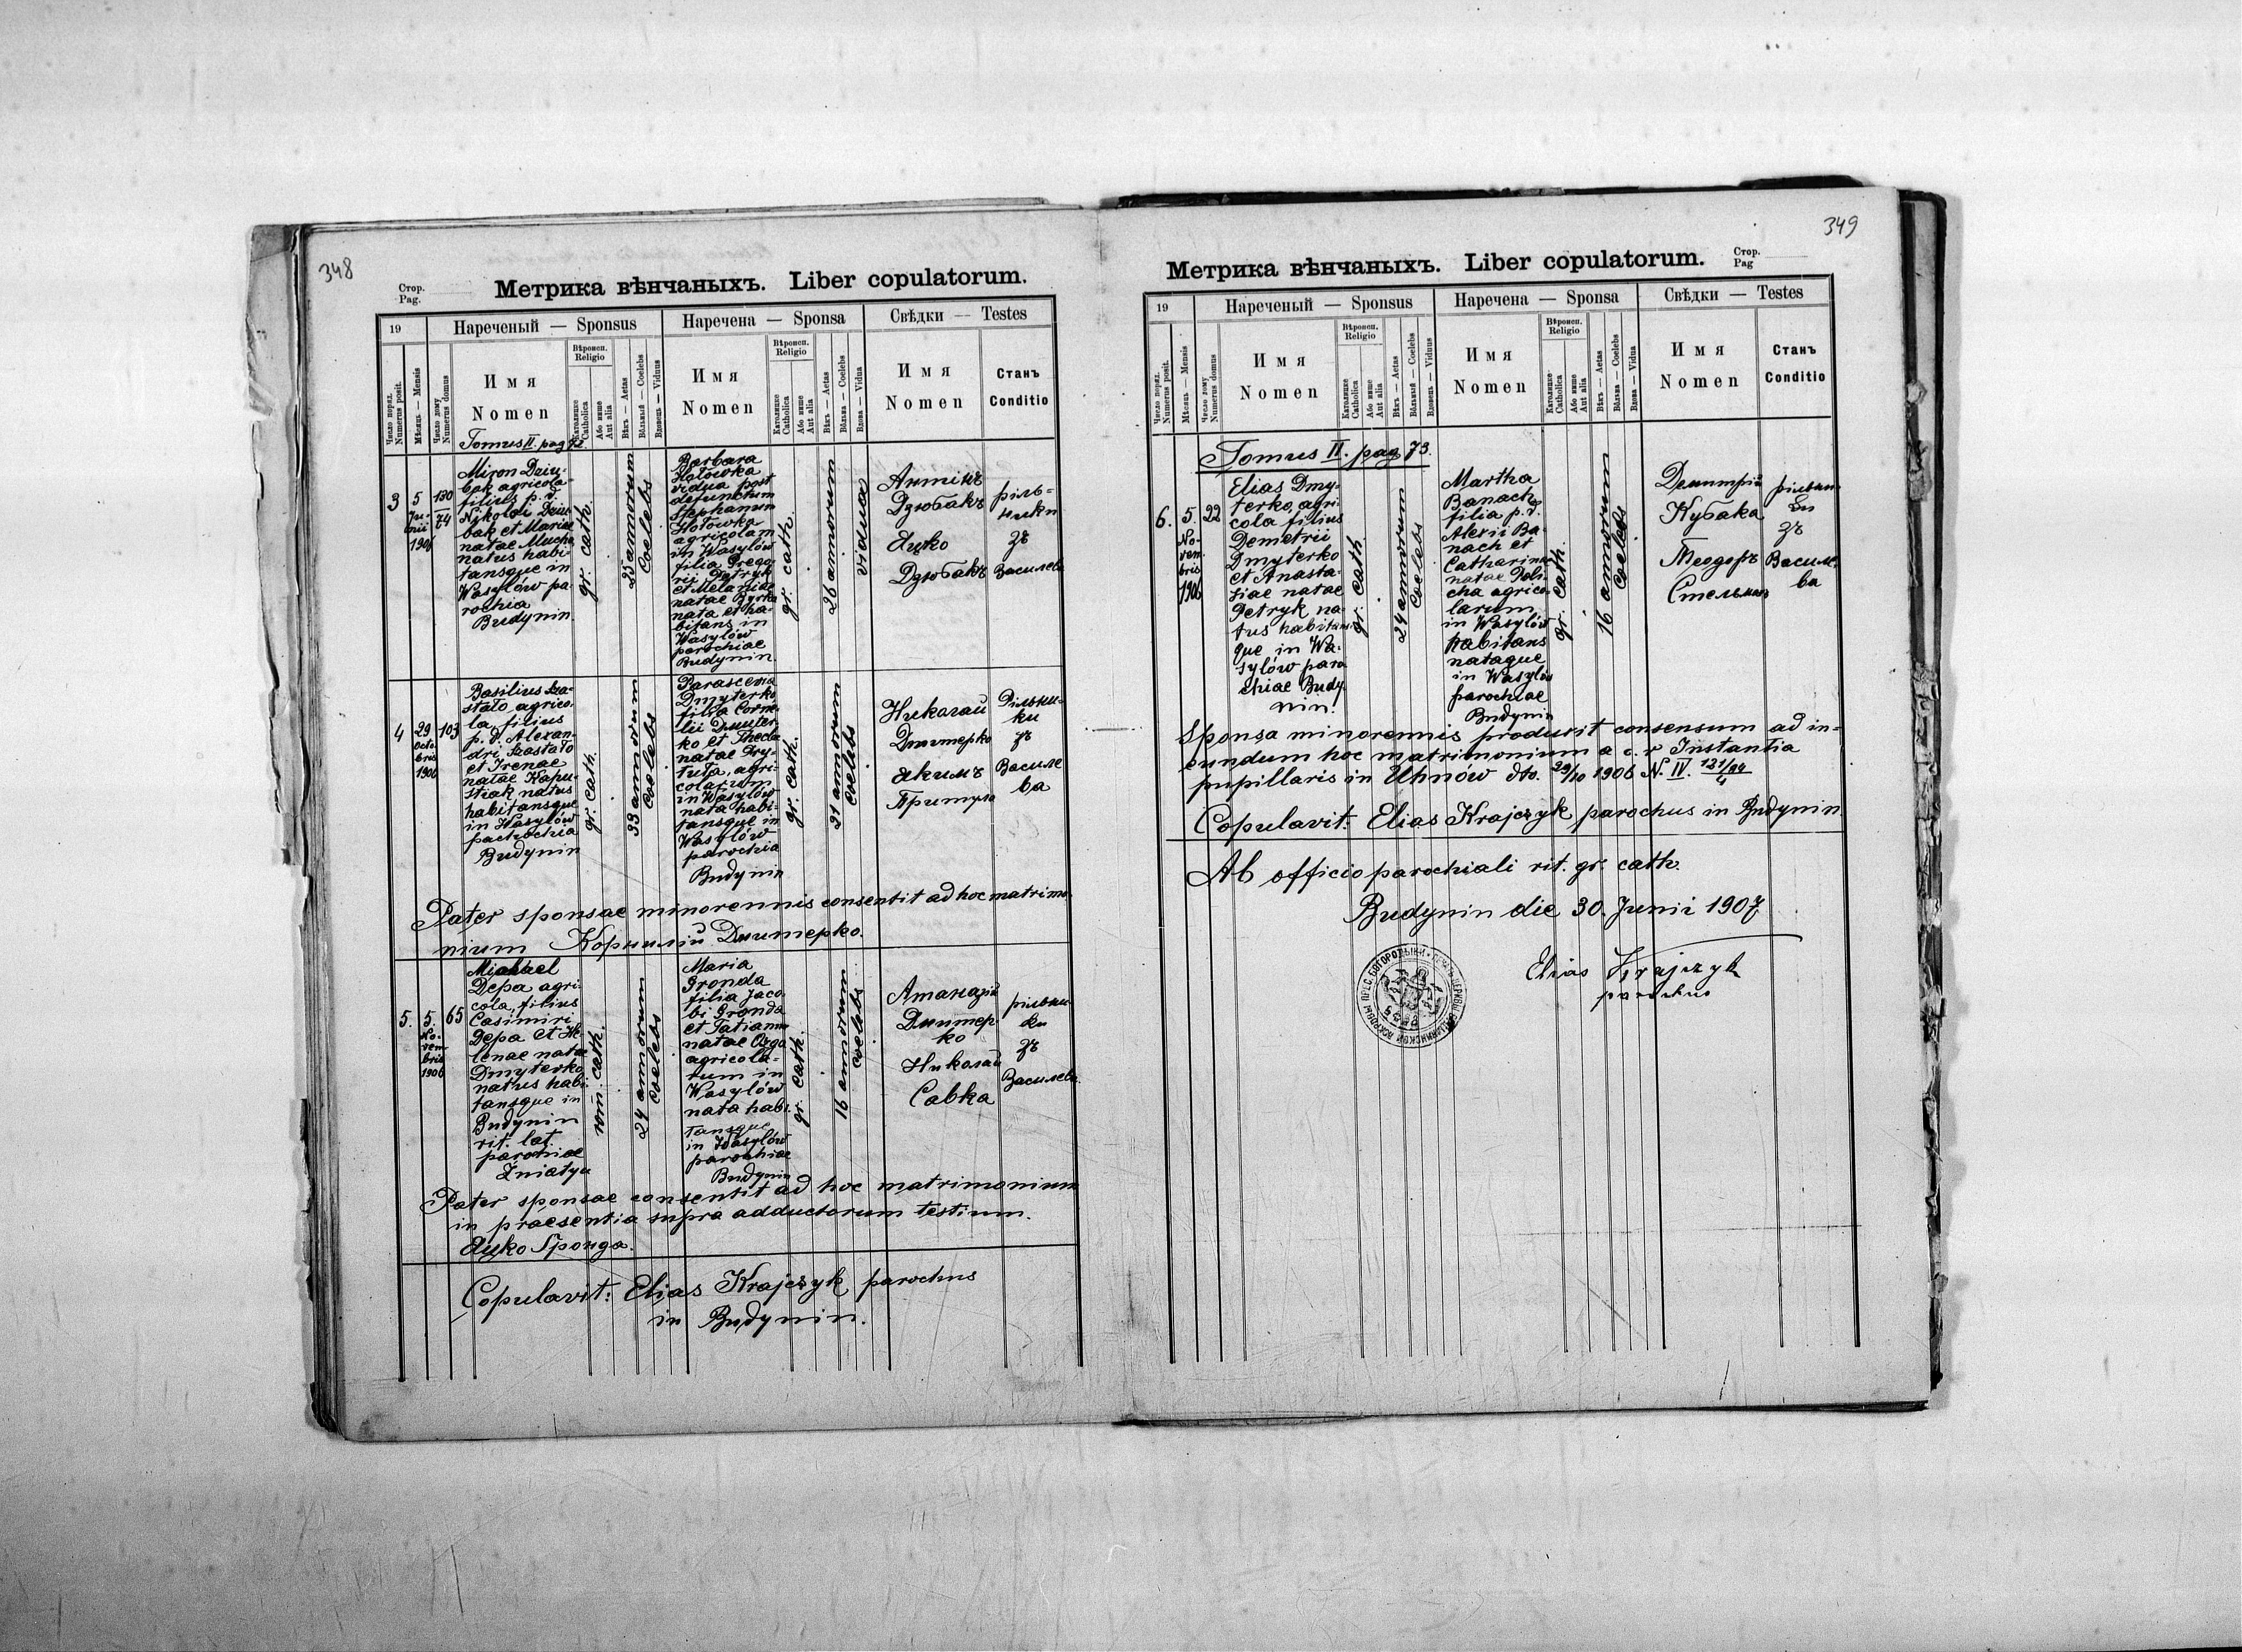 348
Стор.
Pag.
Метрика вѣнчаныхъ. Liber copulatorum.
19
Нареченый — Sponsus
Наречена — Sponsa
Свѣдки — Testes
Число поряд.
Numerus posit.
Мѣсяць — Mensis
Число дому
Numerus domus
Имя
Nomen
Вѣроисп.
Religio
Католицке
Catholica
Або инше
Aut alia
Вѣкъ — Aetas
Вольный — Coelebs
Вдовець — Viduus
Имя
Nomen
Вѣроисп.
Religio
Католицке
Catholica
Або инше
Aut alia
Вѣкъ — Aetas
Вольна — Coelebs
Вдова — Vidua
Имя
Nomen
Станъ
Conditio
Tomus II. pag 72.
3
5
Ju-
nii
1906
130
74
Miron Dziu-
bak agricola
filius p. d.
Nikolai Dziu-
bak et Mariae
natae Mucha
natus habi-
tansque in
Wasylów pa-
rochia
Budynin
gr. cath.
25 annorum
Coelebs
Barbara
Hołówka
vidua post
defunctum
Stephanum
Hołowka
agricolam
in Wasylów
filia Grego-
rii Petryk
et Melaniae
natae Byrka
nata et ha-
bitans in
Wasylów
parochiae
Budynin.
gr. cath.
26 annorum
vidua
Антінъ
Дзюбакъ
Яцко
Дзюбакъ
ріль-
ники
зъ
Василева
4
29
Octo
bris
1906
103
Basilius Sza-
stało agrico-
la, filius
p. d. Alexan-
dri Szastało
et Irenae
natae Kapu-
stiak natus
habitansque
in Wasylów
parochia
Budynin
gr. cath.
33 annorum
coelebs
Parascewa
Dmyterko
filia Corne-
lii Dmyter-
ko et Thecla
natae Pry-
tuła, agri-
colarum
in Wasylów
nata habi-
tansque in
Wasylów
parochia
Budynin
gr. cath.
21 annorum
coelebs
Николай
Дмитерко
Якимъ
Притула
Рільни-
ки
зъ
Василе
ва
Pater sponsae minorennis consentit ad hoc matrimo-
nium Корнилій Дмитерко.
5.
5.
No-
vem
bris
1906
65
Michael
Depa agri-
cola, filius
Casimiri
Depa et He-
lenae natae
Dmyterko
natus habi-
tansque in
Budynin
rit. lat.
parohiae
Żniatyn
rom. cath.
24 annorum
coelebs
Maria
Gronda
filia Jaco-
bi Gronda
et Tatianae
natae Oyga
agricola-
rum in
Wasylów
nata habi-
tansque
in Wasylów
parochiae
Budynin
gr. cath.
16 annorum
coelebs
Атаназій
Дмитер-
ко
Николай
Савка
рільни-
ки
зъ
Василева.
Pater sponsae consentit ad hoc matrimonium
in praesentia supra adductorum testium.
Яцко Ґронда.
Copulavit: Elias Krajczyk parochus
in Budynin.
349
Метрика вѣнчаныхъ. Liber copulatorum.
Стор.
Pag
19
Нареченый — Sponsus
Наречена — Sponsa
Свѣдки — Testes
Число поряд.
Numerus posit.
Мѣсяць — Mensis
Число дому
Numerus domus
Имя
Nomen
Вѣроисп.
Religio
Католицке
Catholica
Або инше
Aut alia
Вѣкъ — Aetas
Вольный — Coelebs
Вдовець — Viduus
Имя
Nomen
Вѣроисп.
Religio
Католицке
Catholica
Або инше
Aut alia
Вѣкъ — Aetas
Вольна — Coelebs
Вдова — Vidua
Имя
Nomen
Станъ
Conditio
Tomus II. pag 73.
6.
5.
No-
vem
bris
1906
22
Elias Dmy-
terko, agri-
cola filius
Demetrii
Dmyterko
et Anasta-
siae natae
Petryk na-
tus habitans-
que in Wa-
sylów paro-
chiae Budy-
nin.
gr. cath
24 annorum
Coelebs
Martha
Banach
filia p. d.
Alexii Ba-
nach et
Catharinae
natae Poli-
cha agrico-
larum
in Wasylów
habitans
nataque
in Wasylów
parochiae
Budynin
gr. cath.
16 annorum
coelebs
Дмитрій
Кубака
Теодоръ
Стельмах
рільни-
ки
зъ
Василе-
ва
Sponsa minorennis produxit consensum ad in-
eundum hoc matrimonium a c. r Instantia
pupillaris in Uhnów dto. 29/10 1906 N. IV. 121/99
4
Copulavit: Elias Krajczyk parochus in Budynin
Ab officio parochiali rit. gr. cath.
Budynin die 30. Junii 1907
Elias Krajczyk
parochus